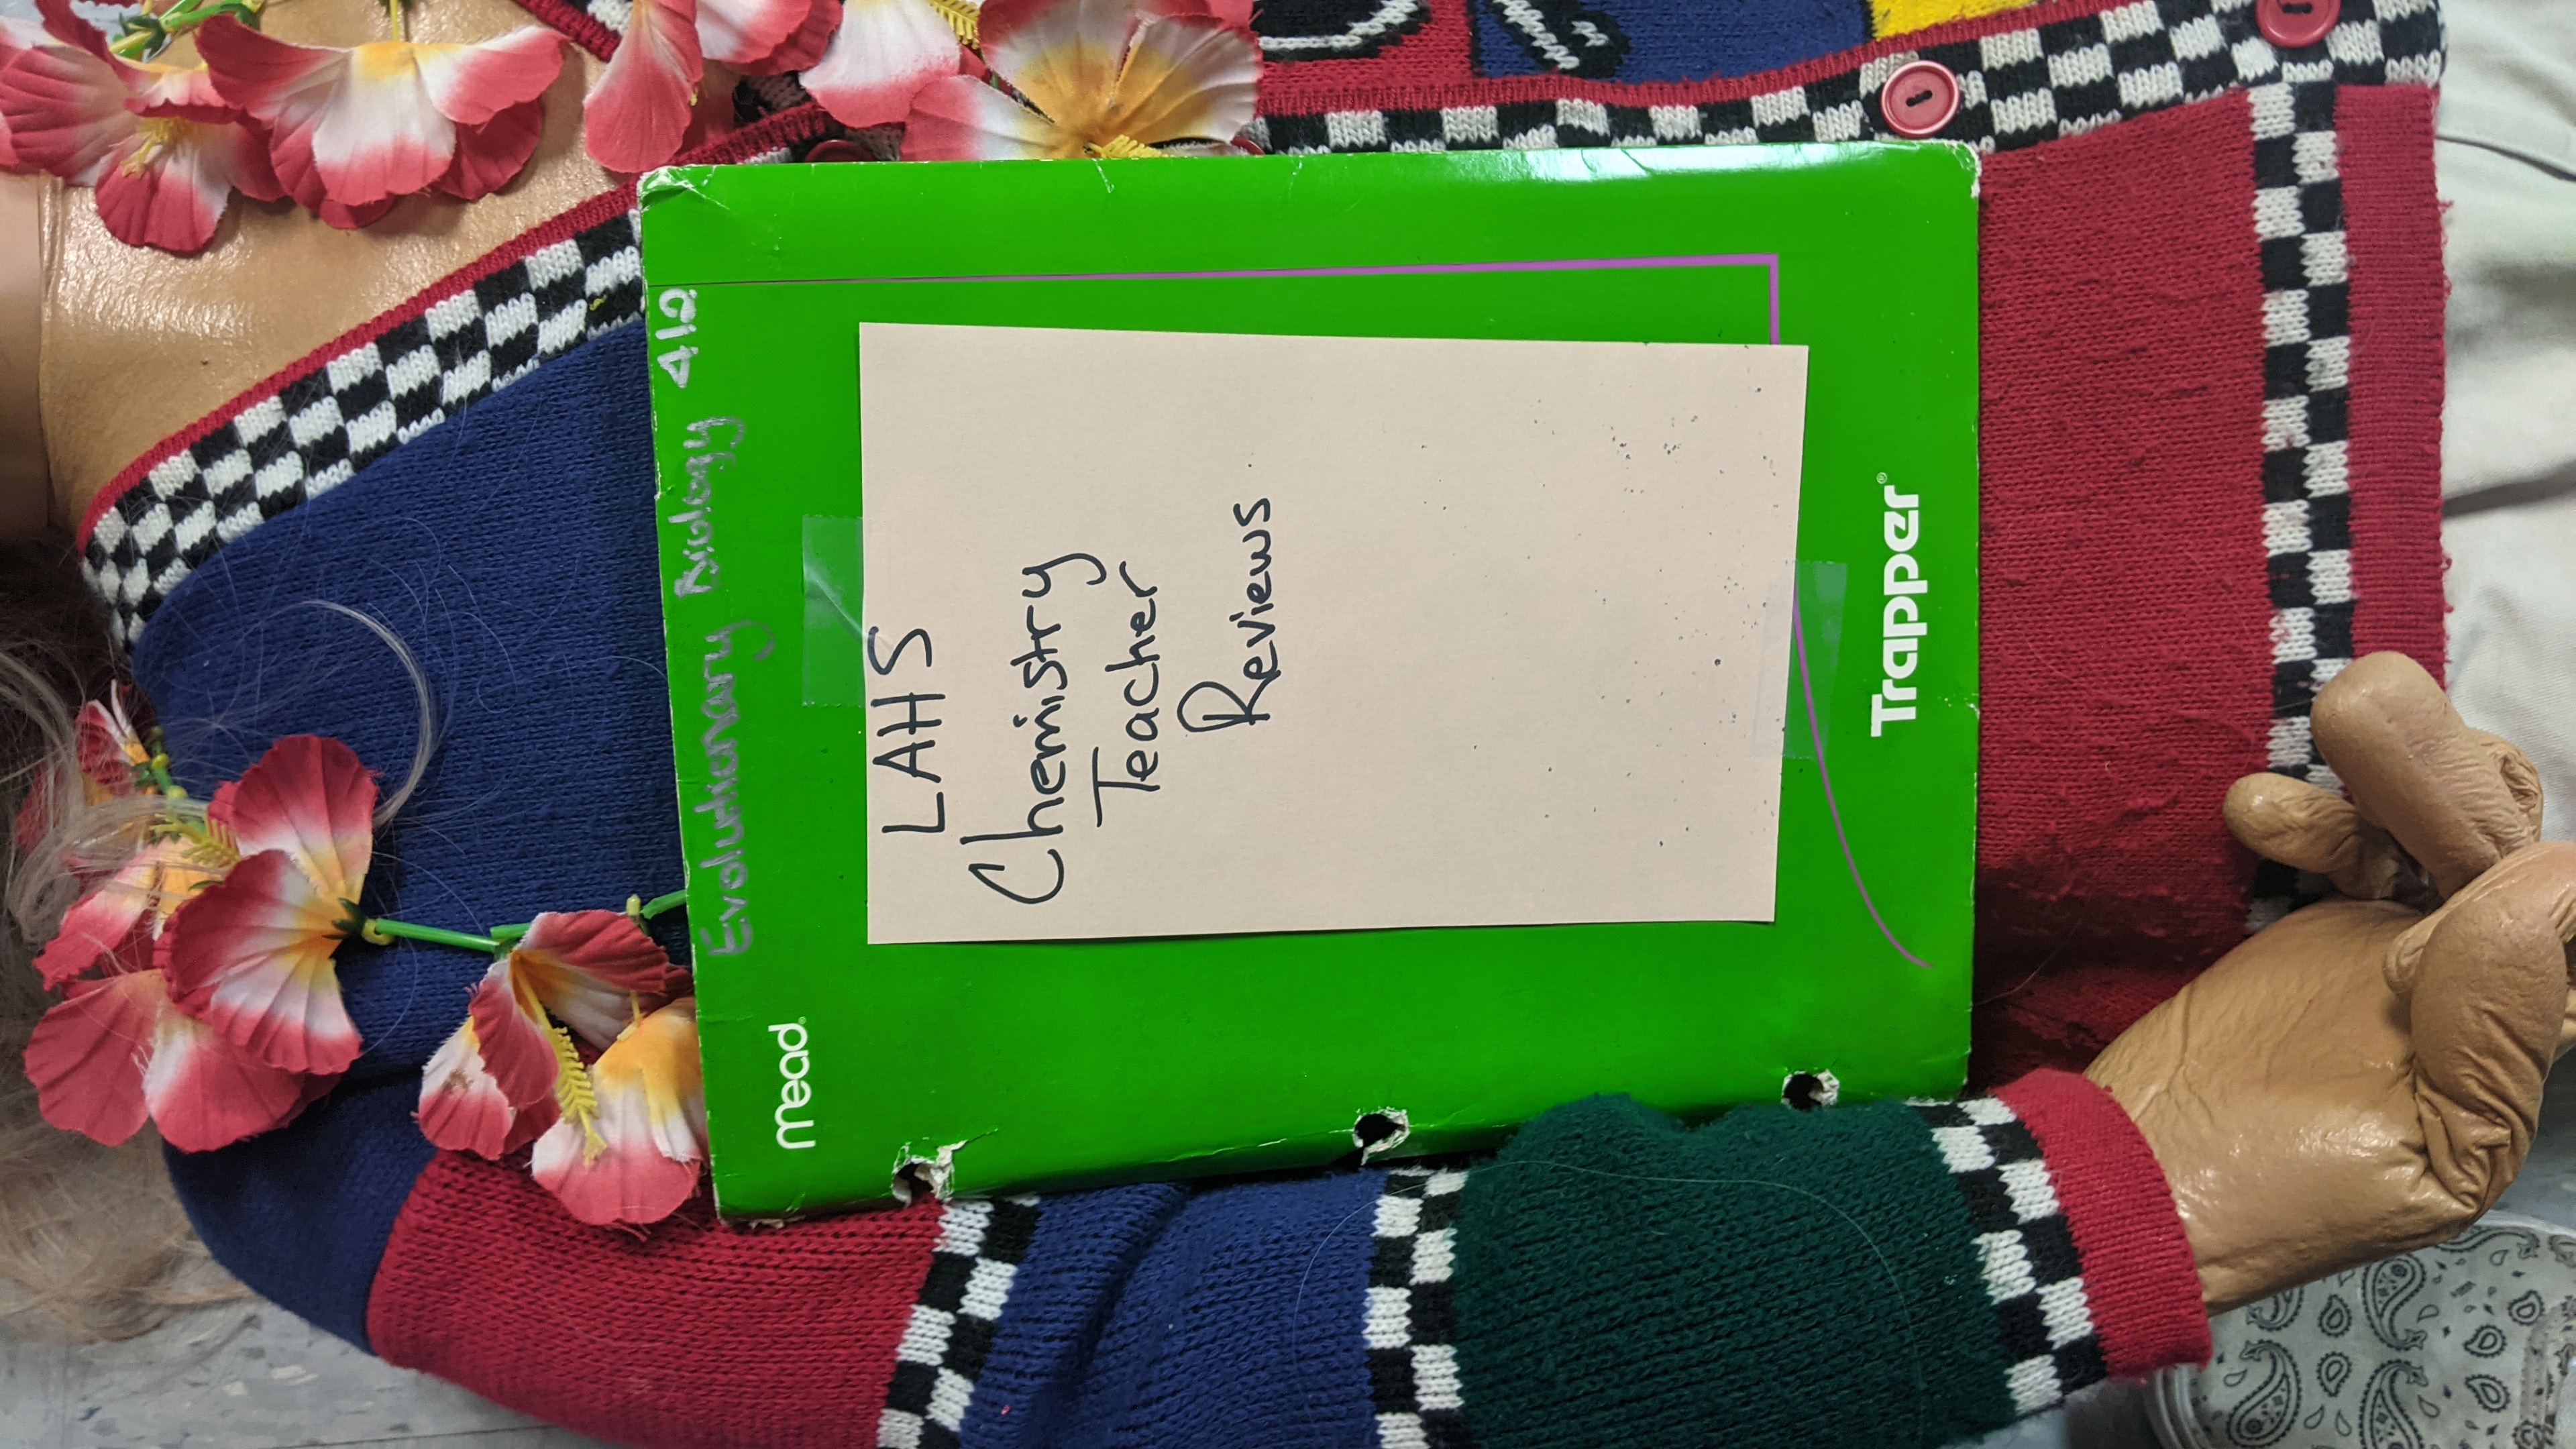 Evolutionary Biology 412
Mead
LAHS
Chemistry
Teacher
Reviews
Trapper®